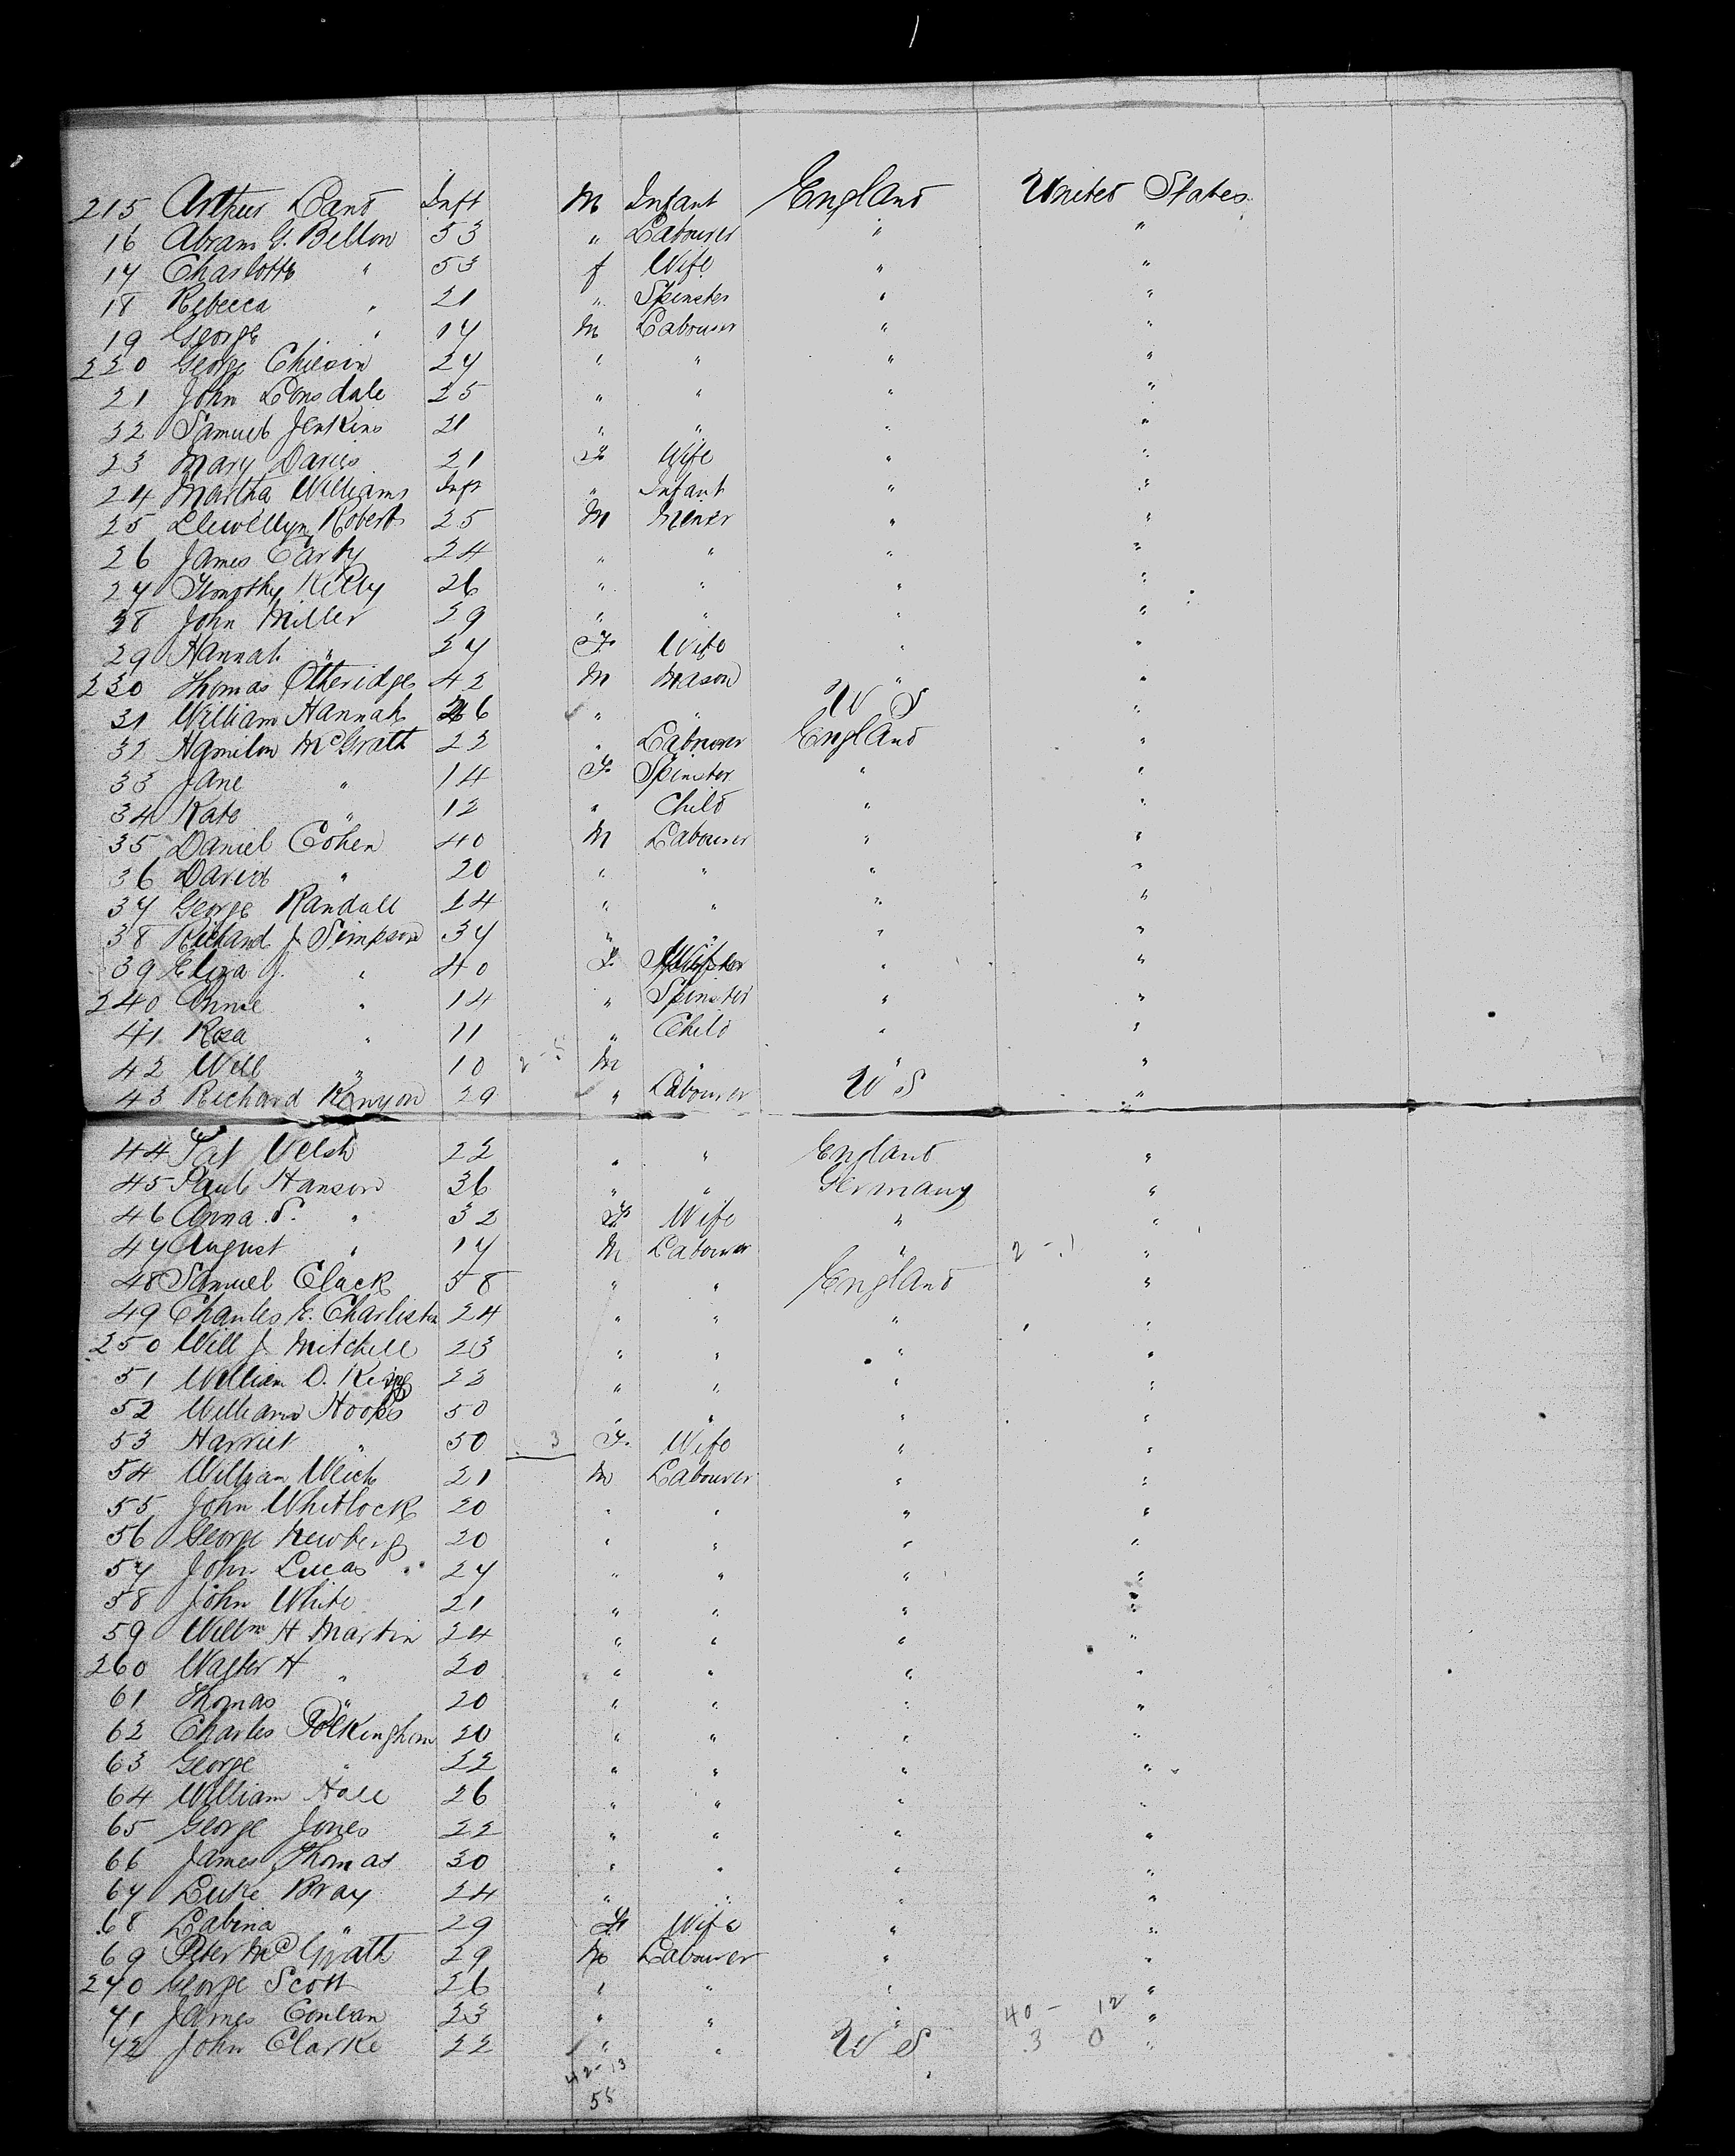 215 Arthur Cant Inft M Infant England United States
16 Abram G. Bellow 53 " Labourer " "
17 Charlotte " 53 f Wife " "
18 Rebecca " 21 " Spinster " "
19 George " 17 M Labourer " "
220 George 27 " " " "
21 John Lonsdale 25 " " " "
22 Samuel Jenkins 21 " " " "
23 Mary Davies 21 F Wife " "
24 Martha Williams Inft " Infant " "
25 Llewellyn Roberts 25 M Miner " "
26 James Early 24 " " " "
27 Timothy Kelly 26 " " " "
28 John Miller 29 " " " "
29 Hannah " 27 F. Wife " "
230 Thomas Otteridge 42 M Mason " "
31 William Hannah 26 " " U S "
32 Hamilton McGrath 22 " Labourer England "
33 Jane " 14 F. Spinster " "
34 Kate " 12 " Child " "
35 Daniel Cohen 40 M Labourer " "
36 David " 20 " " " "
37 George Randall 24 " " " "
38 Richard J Simpson 37 " " " "
39 Eliza J. " 40 F. Wife " "
240 Annie " 14 " Spinster " "
41 Rosa " 11 " Child " "
42 Will " 10 2-5 M " " "
43 Richard Kenyon 29 " Labourer U S "
44 Pat Welsh 22 " " England "
45 Paul Hanson 36 " " Germany "
46 Anna S. " 32 F Wife " "
47 August " 17 M Labourer " 2-1 "
48 Samuel Clack 58 " " England "
49 Charles E. Charliston 24 " " " "
250 Will J Mitchell 23 " " " "
51 William O. King 22 " " " "
52 William Hooks 50 " " " "
53 Harriet " 50 3 F. Wife " "
54 William Weick 21 M Labourer " "
55 John Whitlock 20 " " " "
56 George Newberg 20 " " " "
57 John Lucas 27 " " " "
58 John White 21 " " " "
59 Willm H Martin 24 " " " "
260 Walter H " 20 " " " "
61 Thomas " 20 " " " "
62 Charles Polkinghorn 20 " " " "
63 George " 22 " " " "
64 William Hall 26 " " " "
65 George Jones 22 " " " "
66 James Thomas 30 " " " "
67 Luke Bray 24 " " " "
68 Labina " 29 F Wife " "
69 Peter McGrath 29 M Labourer " "
270 George Scott 26 " " " "
71 James Conlan 23 " " " 40 - 12 "
72 John Clarke 22 " " U S 3 0 "
42-13
55